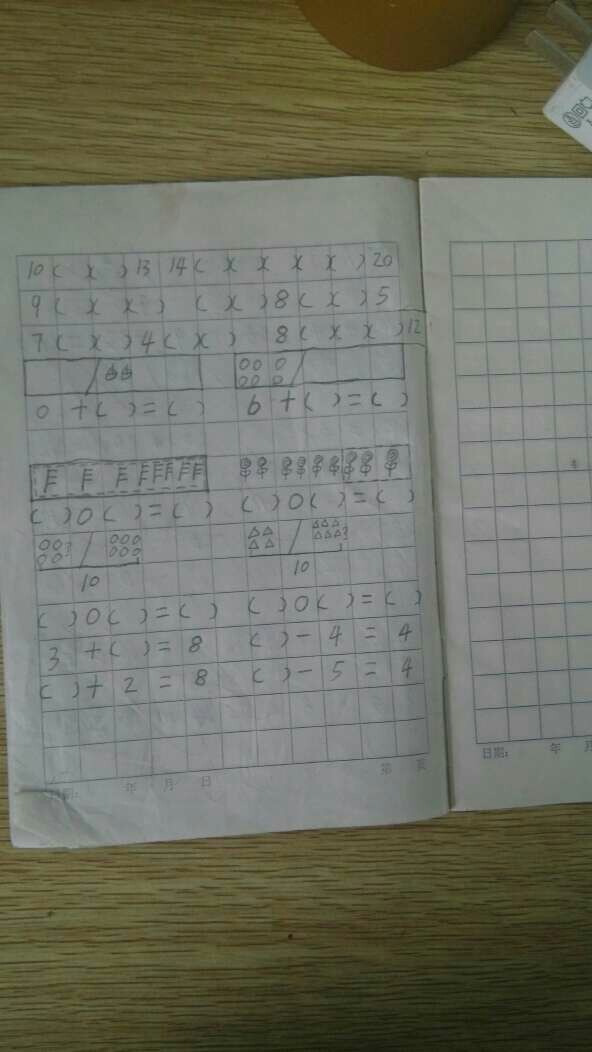 10 ( x ) 13 14 ( x x x x ) 20
9 ( x x ) ( x ) 8 ( x ) 5
7 ( x ) 4 ( x ) 8 ( x x ) 12
0 + ( ) = ( ) 6 + ( ) = ( )
( ) O ( ) = ( ) ( ) O ( ) = ( )
? ?
10 10
( ) O ( ) = ( ) ( ) O ( ) = ( )
3 + ( ) = 8 ( ) - 4 = 4
( ) + 2 = 8 ( ) - 5 = 4
日期: 年 月 日 第 页
日期: 年 月